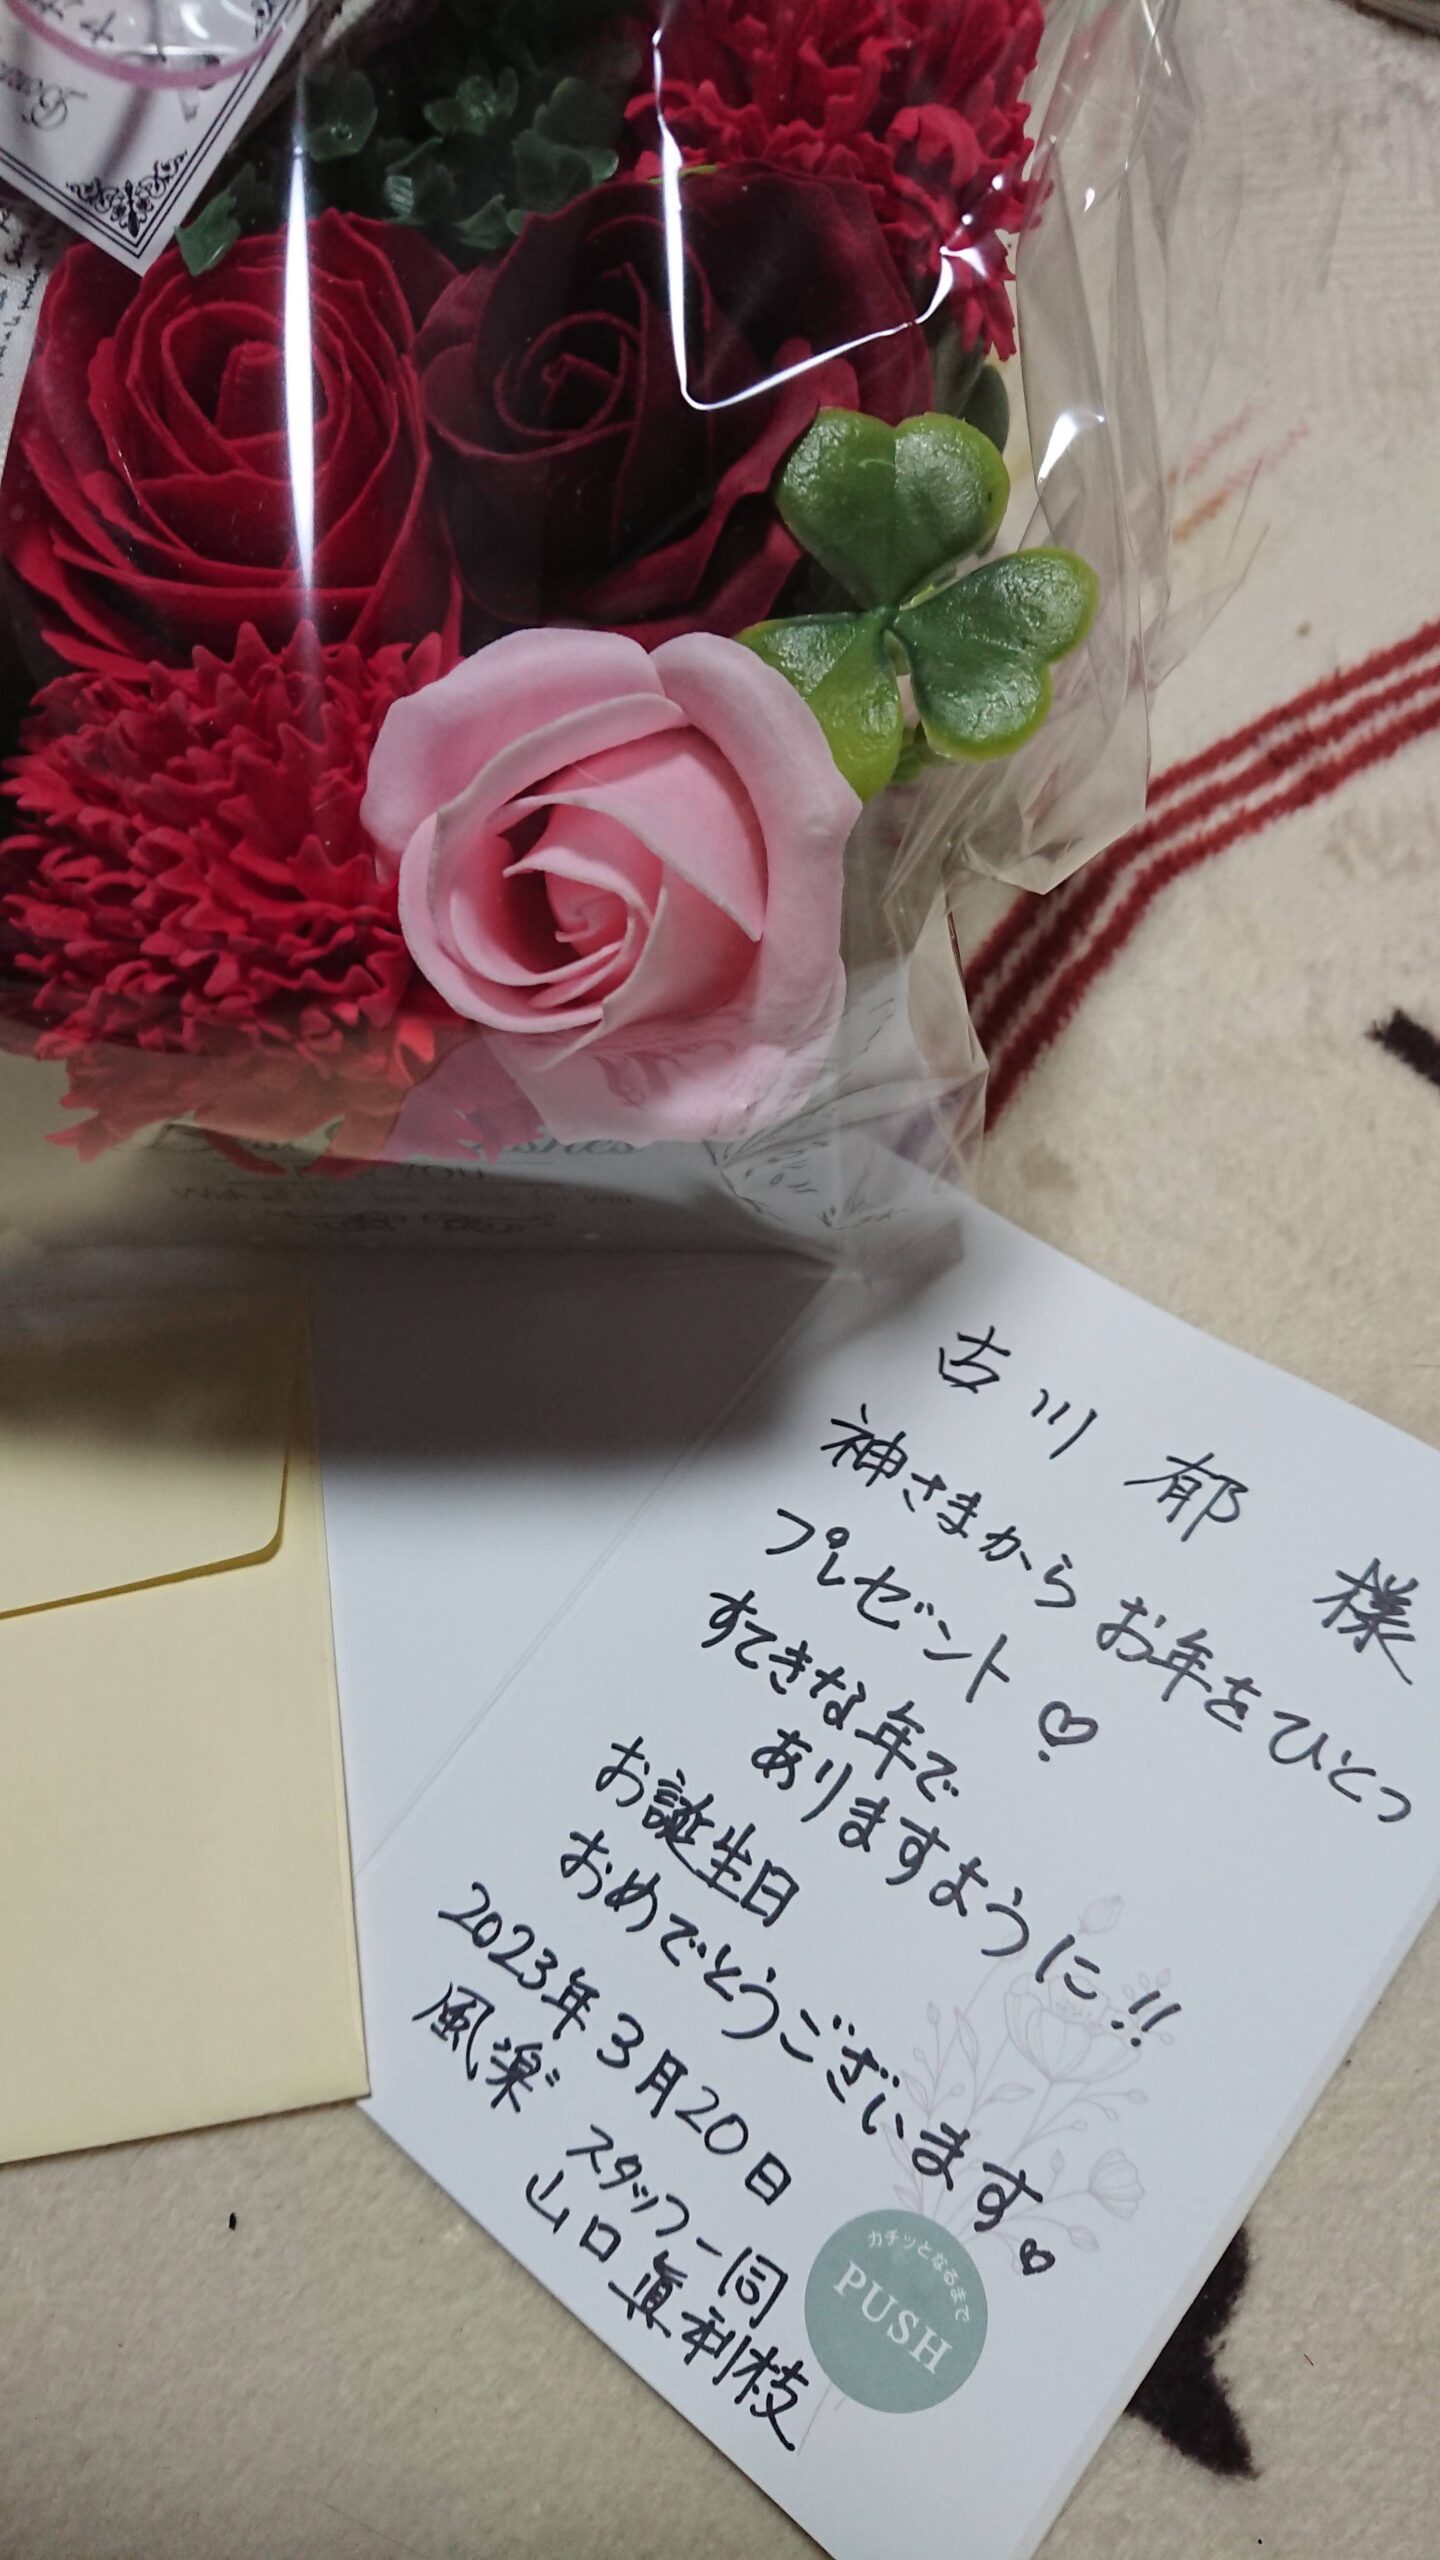 古川 郁 様
神さまから お年をひとつ
プレゼント♡
すてきな年で
ありますように!!
お誕生日
おめでとうございます♡
2023年3月20日
風楽 スタッフ一同
山口眞利枝
カチッとなるまで
PUSH